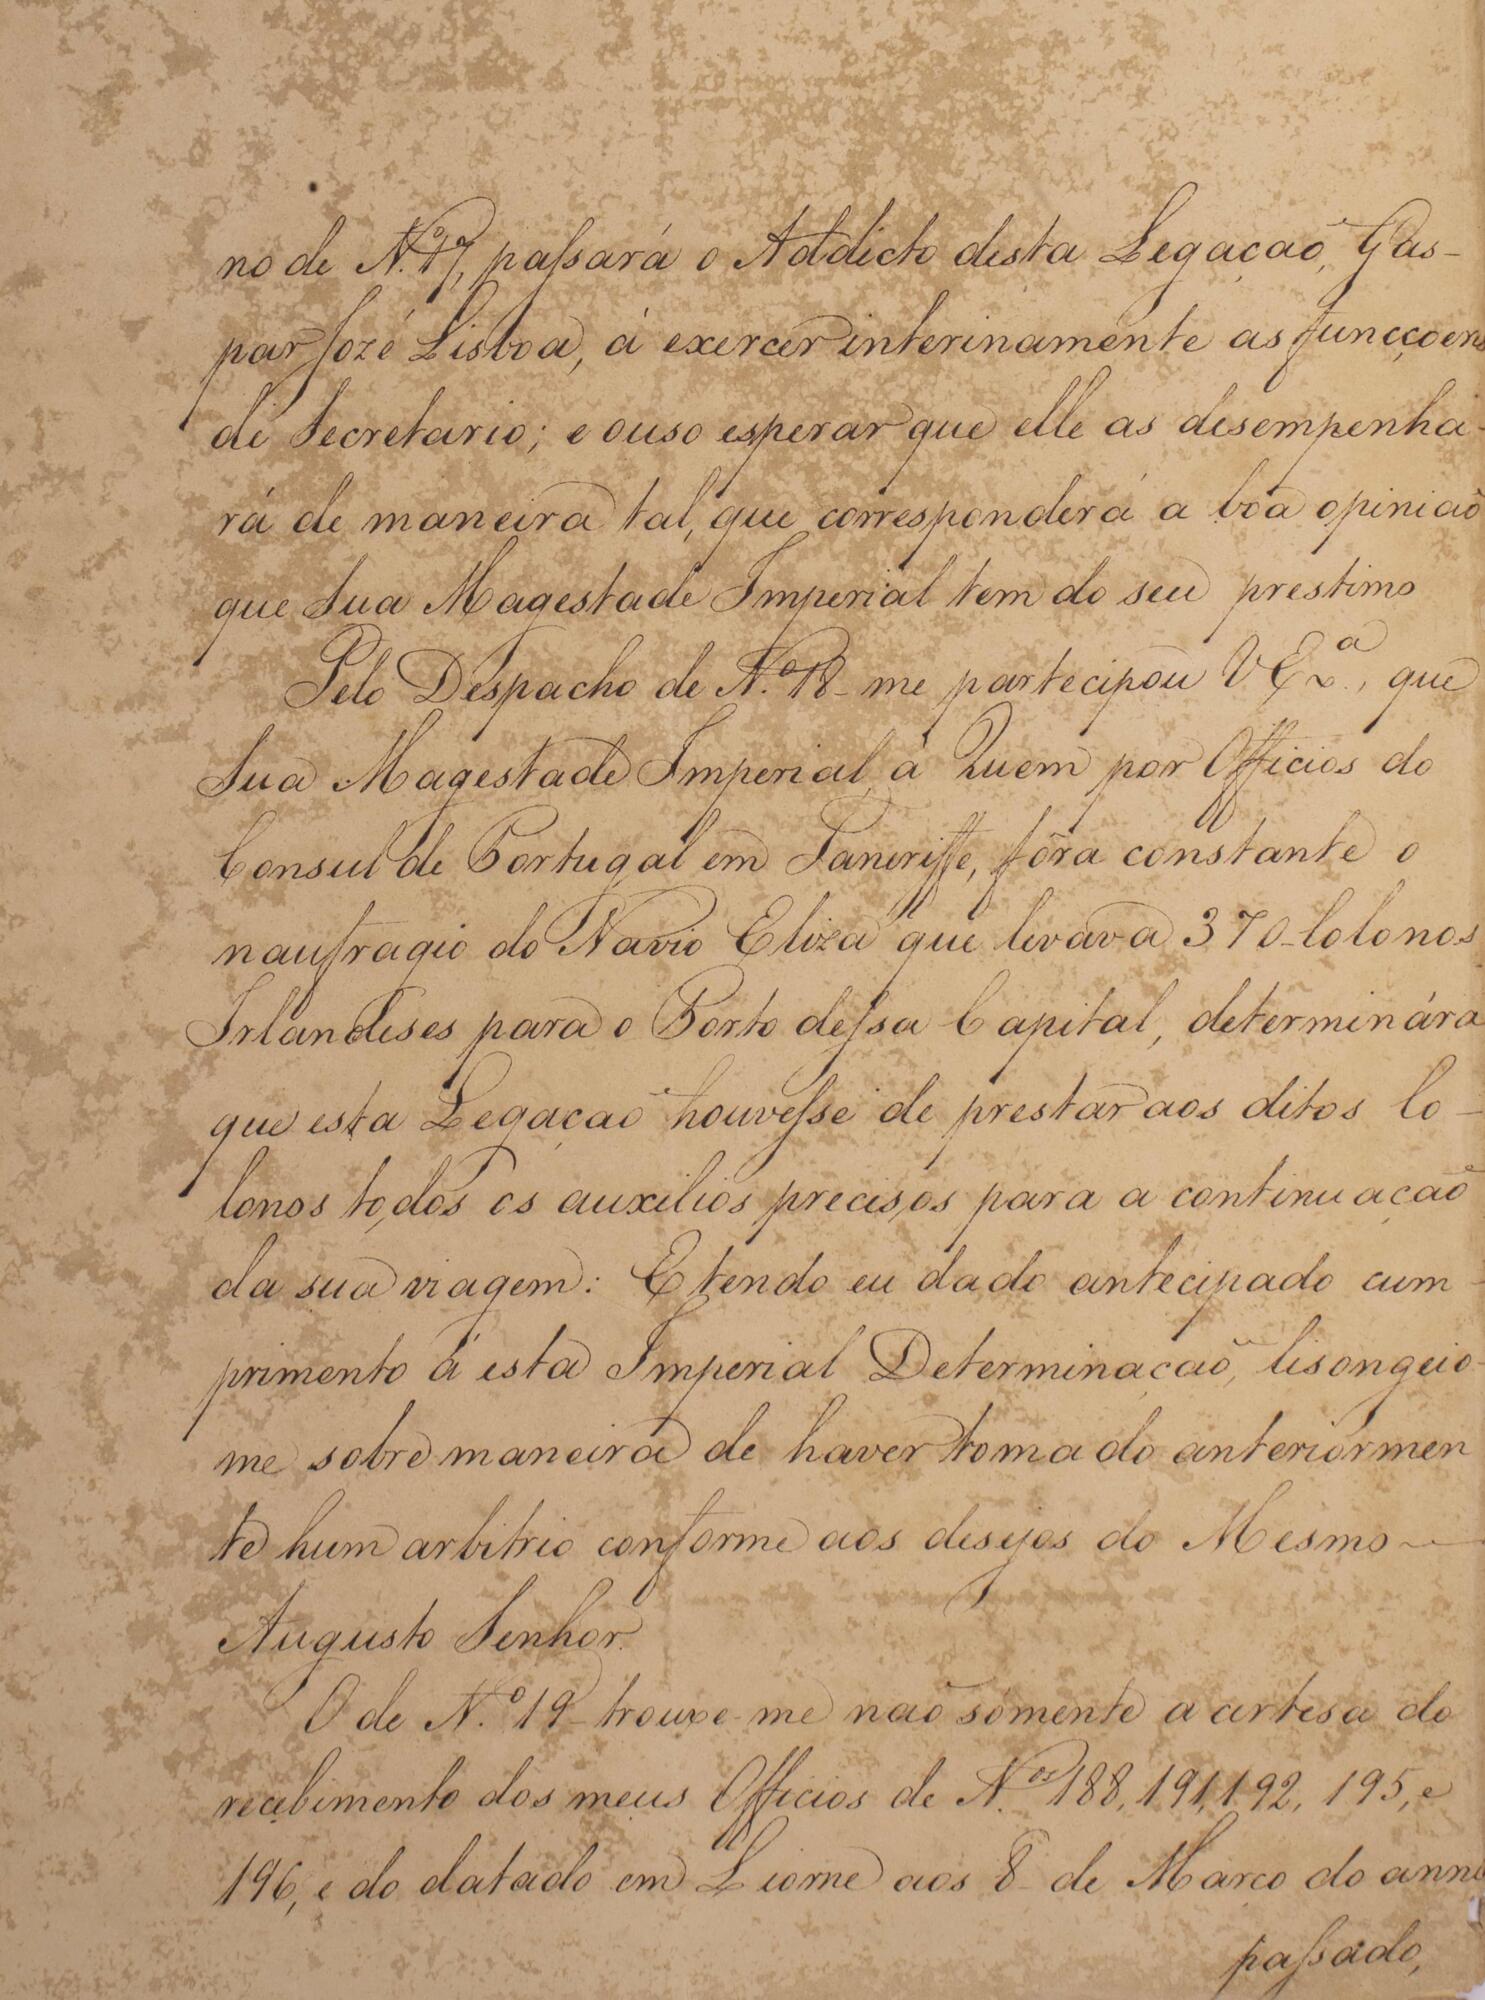 no de N.º 17, passará o Addicto desta Legação, Gas-
par Jozé Lisboa, á exercer interinamente as funcçoens
de Secretario; e ouso esperar que elle as desempenha-
rá de maneira tal, que corresponderá a boa opinião
que Sua Magestade Imperial tem do seu prestimo
Pelo Despacho de N.º 18 - me partecipou V Ex.ª, que
Sua Magestade Imperial, á Quem por Officios do
Consul de Portugal em Taneriffe, fôra constante o
naufragio do Navio Eliza que levava 370 - Colonos
Irlandeses para o Porto dessa Capital, determinára
que esta Legação houvesse de prestar aos ditos Co-
lonos todos os auxilios precisos para a continuação
da sua viagem: E tendo eu dado antecipado cum-
primento á esta Imperial Determinação, lisongeio-
me sobre maneira de haver tomado anteriormen
te hum arbitrio conforme aos desejos do Mesmo
Augusto Senhor.
O de N.º 19 - trouxe-me não sómente a certesa do
recebimento dos meus Officios de N.os 188, 191, 192, 195, e
196, e do datado em Liorne aos 8 - de Março do anno
passado,